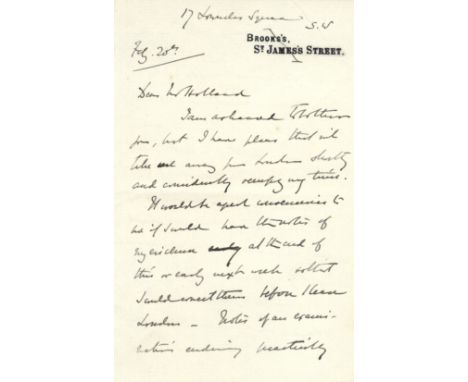 17 Lowndes Square
S.W
BROOKS'S,
ST JAMES'S STREET.
Feb. 20th
Dear Mr Holland
I am ashamed to bother
you, but I have plans that will
take me away from London shortly
and considerably occupy my time.
It would be a great convenience to
me if I could have the notes of
my evidence early at the end of
this or early next week so that
I could correct them before I leave
London – Notes of an exami-
nation's enduring practically